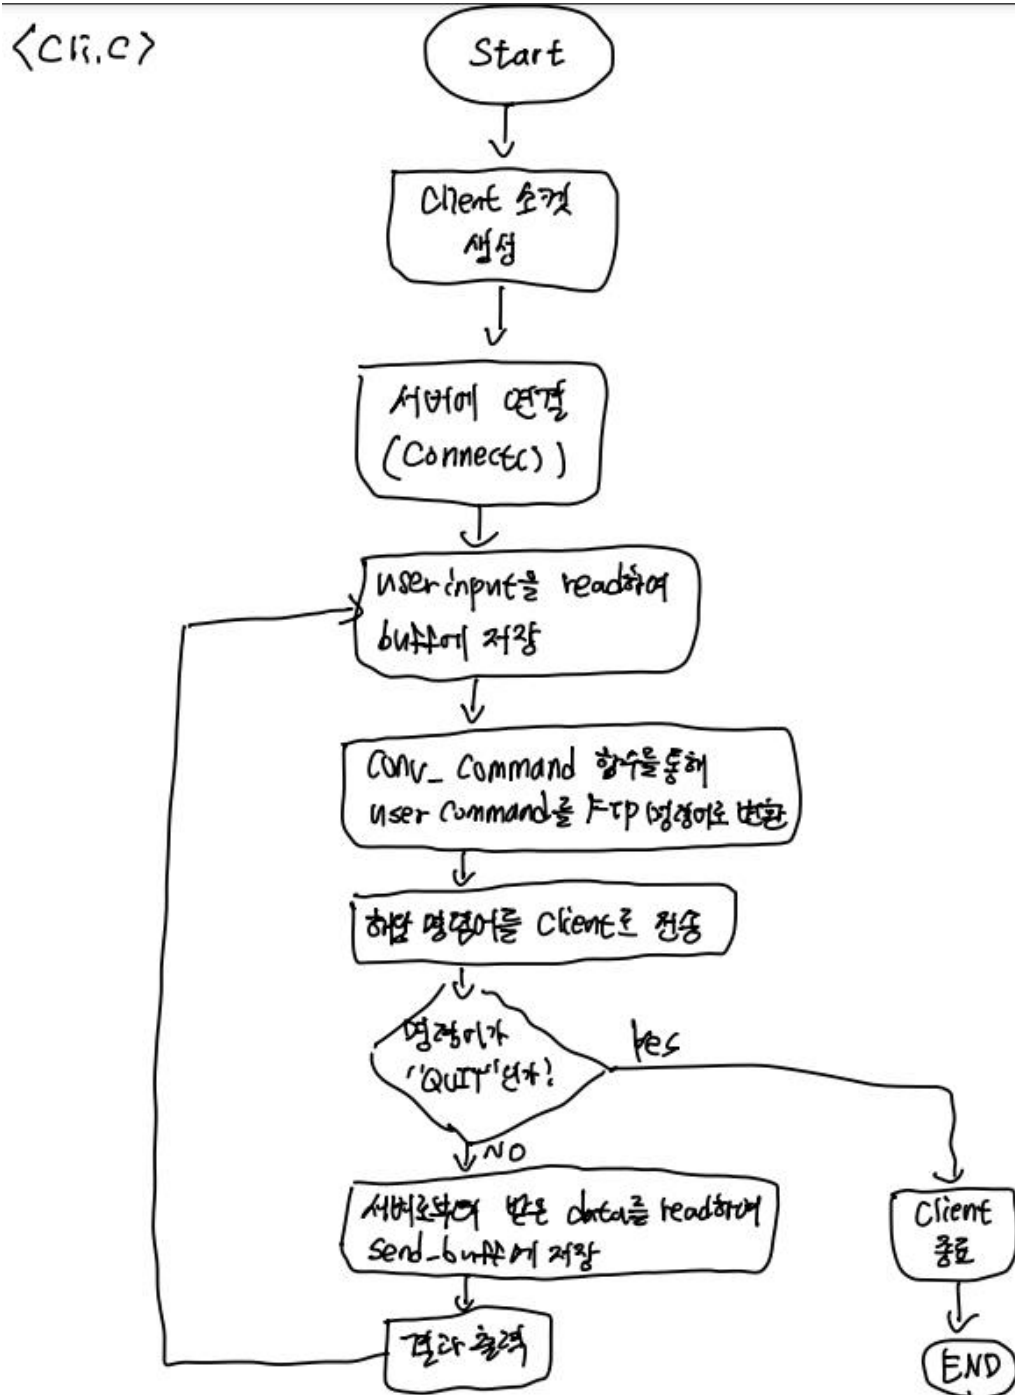 <Cli.C>
Start
Client 소켓
생성
서버에 연결
(Connect())
user input을 read하여
buff에 저장
Conv_ Command 함수를 통해
user command를 FTP 명령어로 변환
해당 명령어를 Client로 전송
명령어가
"QUIT"인가?
Yes
NO
서버로부터 받은 data를 read하여
send_buff에 저장
Client
종료
결과 출력
END